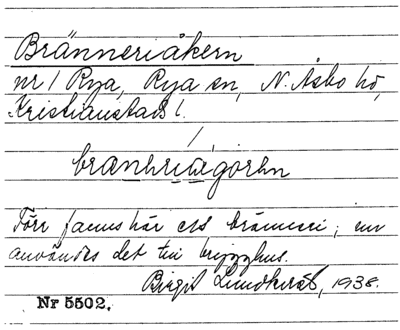 Bränneriåkern
nr 1 Rya, Rya sn, N. Åsbo hd,
Kristianstads l.
Förr fanns här ett bränneri; nu
användes det till brygghus.
Birgit Lundkvist, 1938.
Nr 5502.